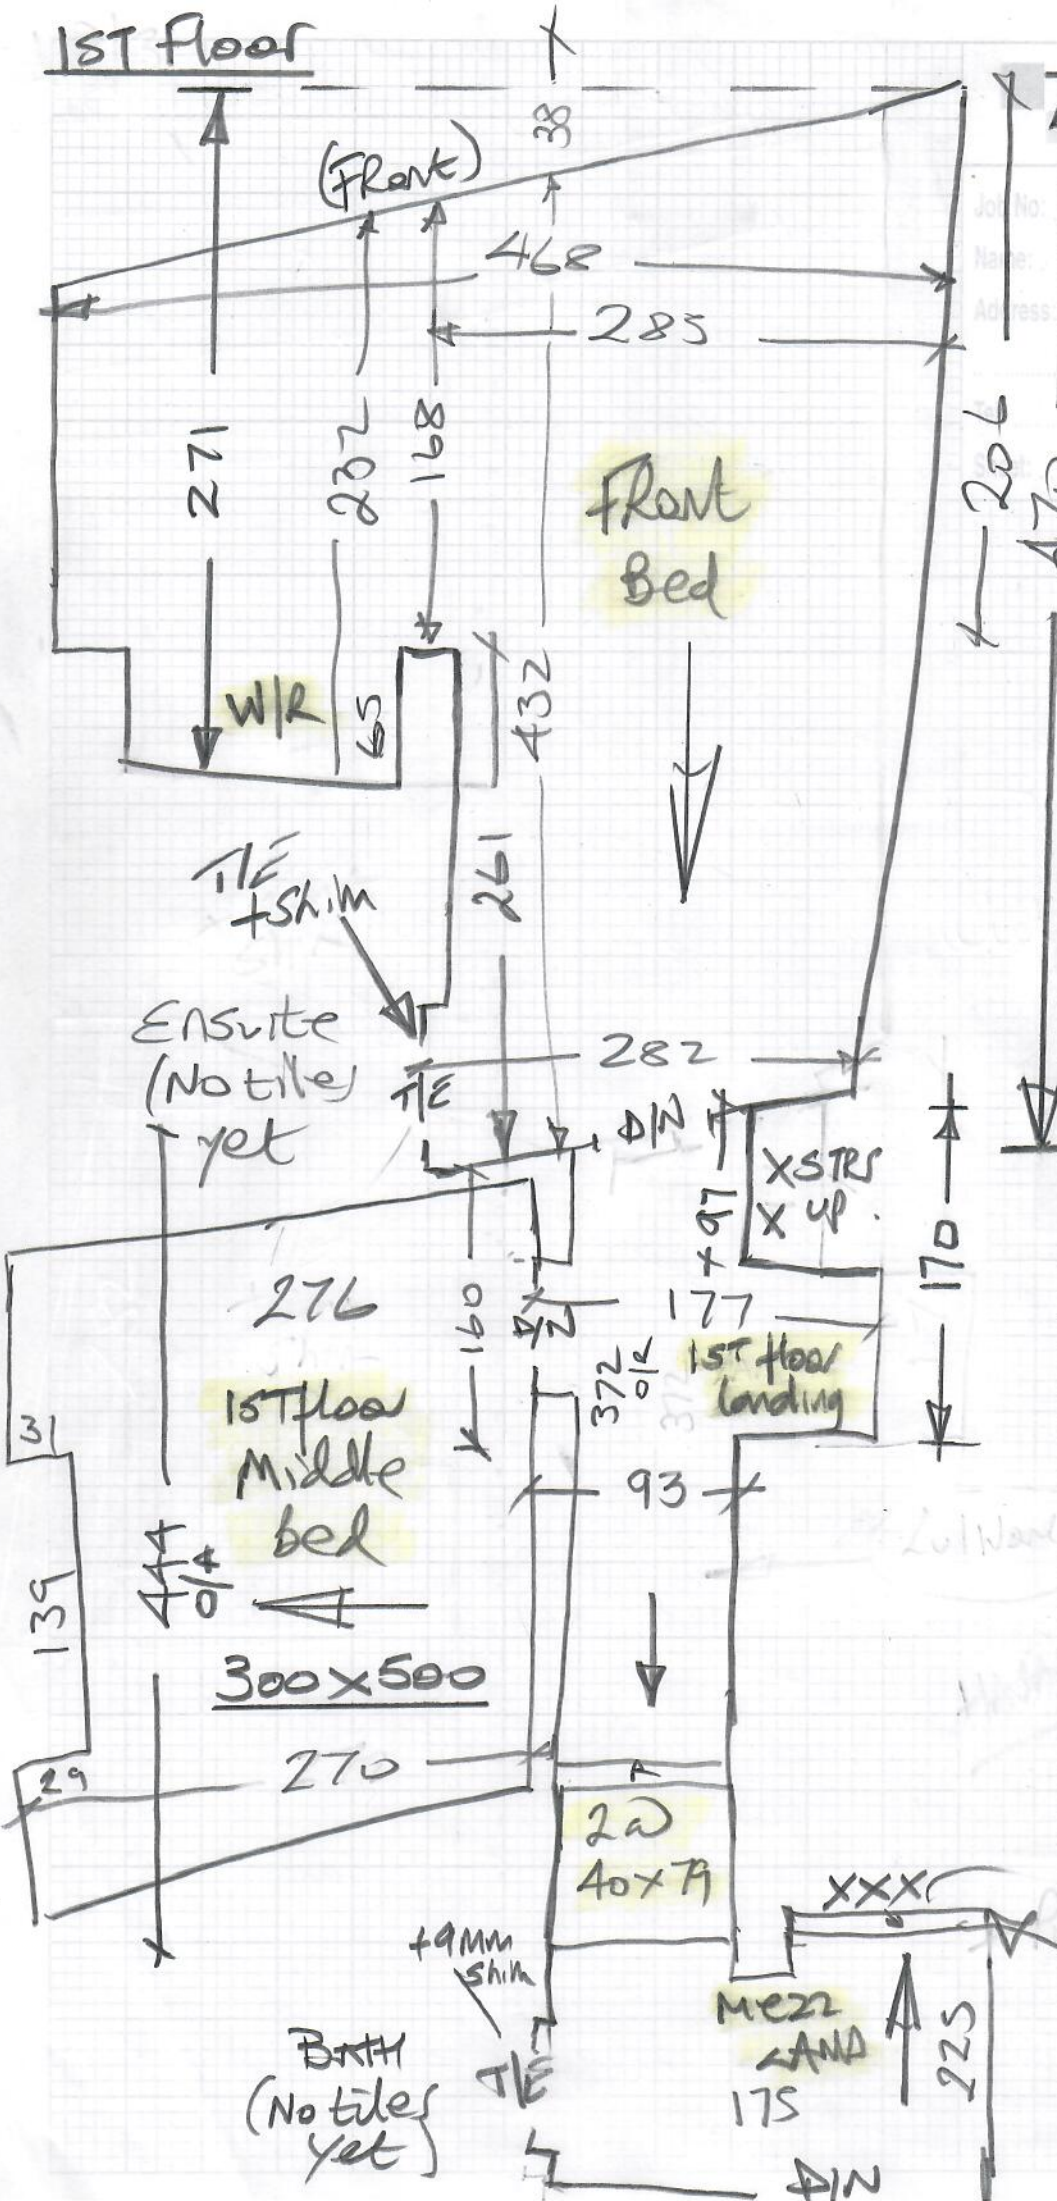 1ST Floor
38
(Front)
468
285
271
232
168
206
Front
Bed
W/R
65
432
261
T/E
+Shim
Ensuite
(No tiles
yet
T/E
282
D/N
XSTRS
X UP.
+97
170
276
160
D/N
177
372
O/R
1ST floor
landing
31
1ST floor
Middle
bed
93
139
444
O/A
300x500
29
270
2@
40x79
XXX
+9MM
Shim
Mezz
LAND
175
225
BATH
(No tiles
yet)
T/E
D/N
Job No:
Name:
Address: